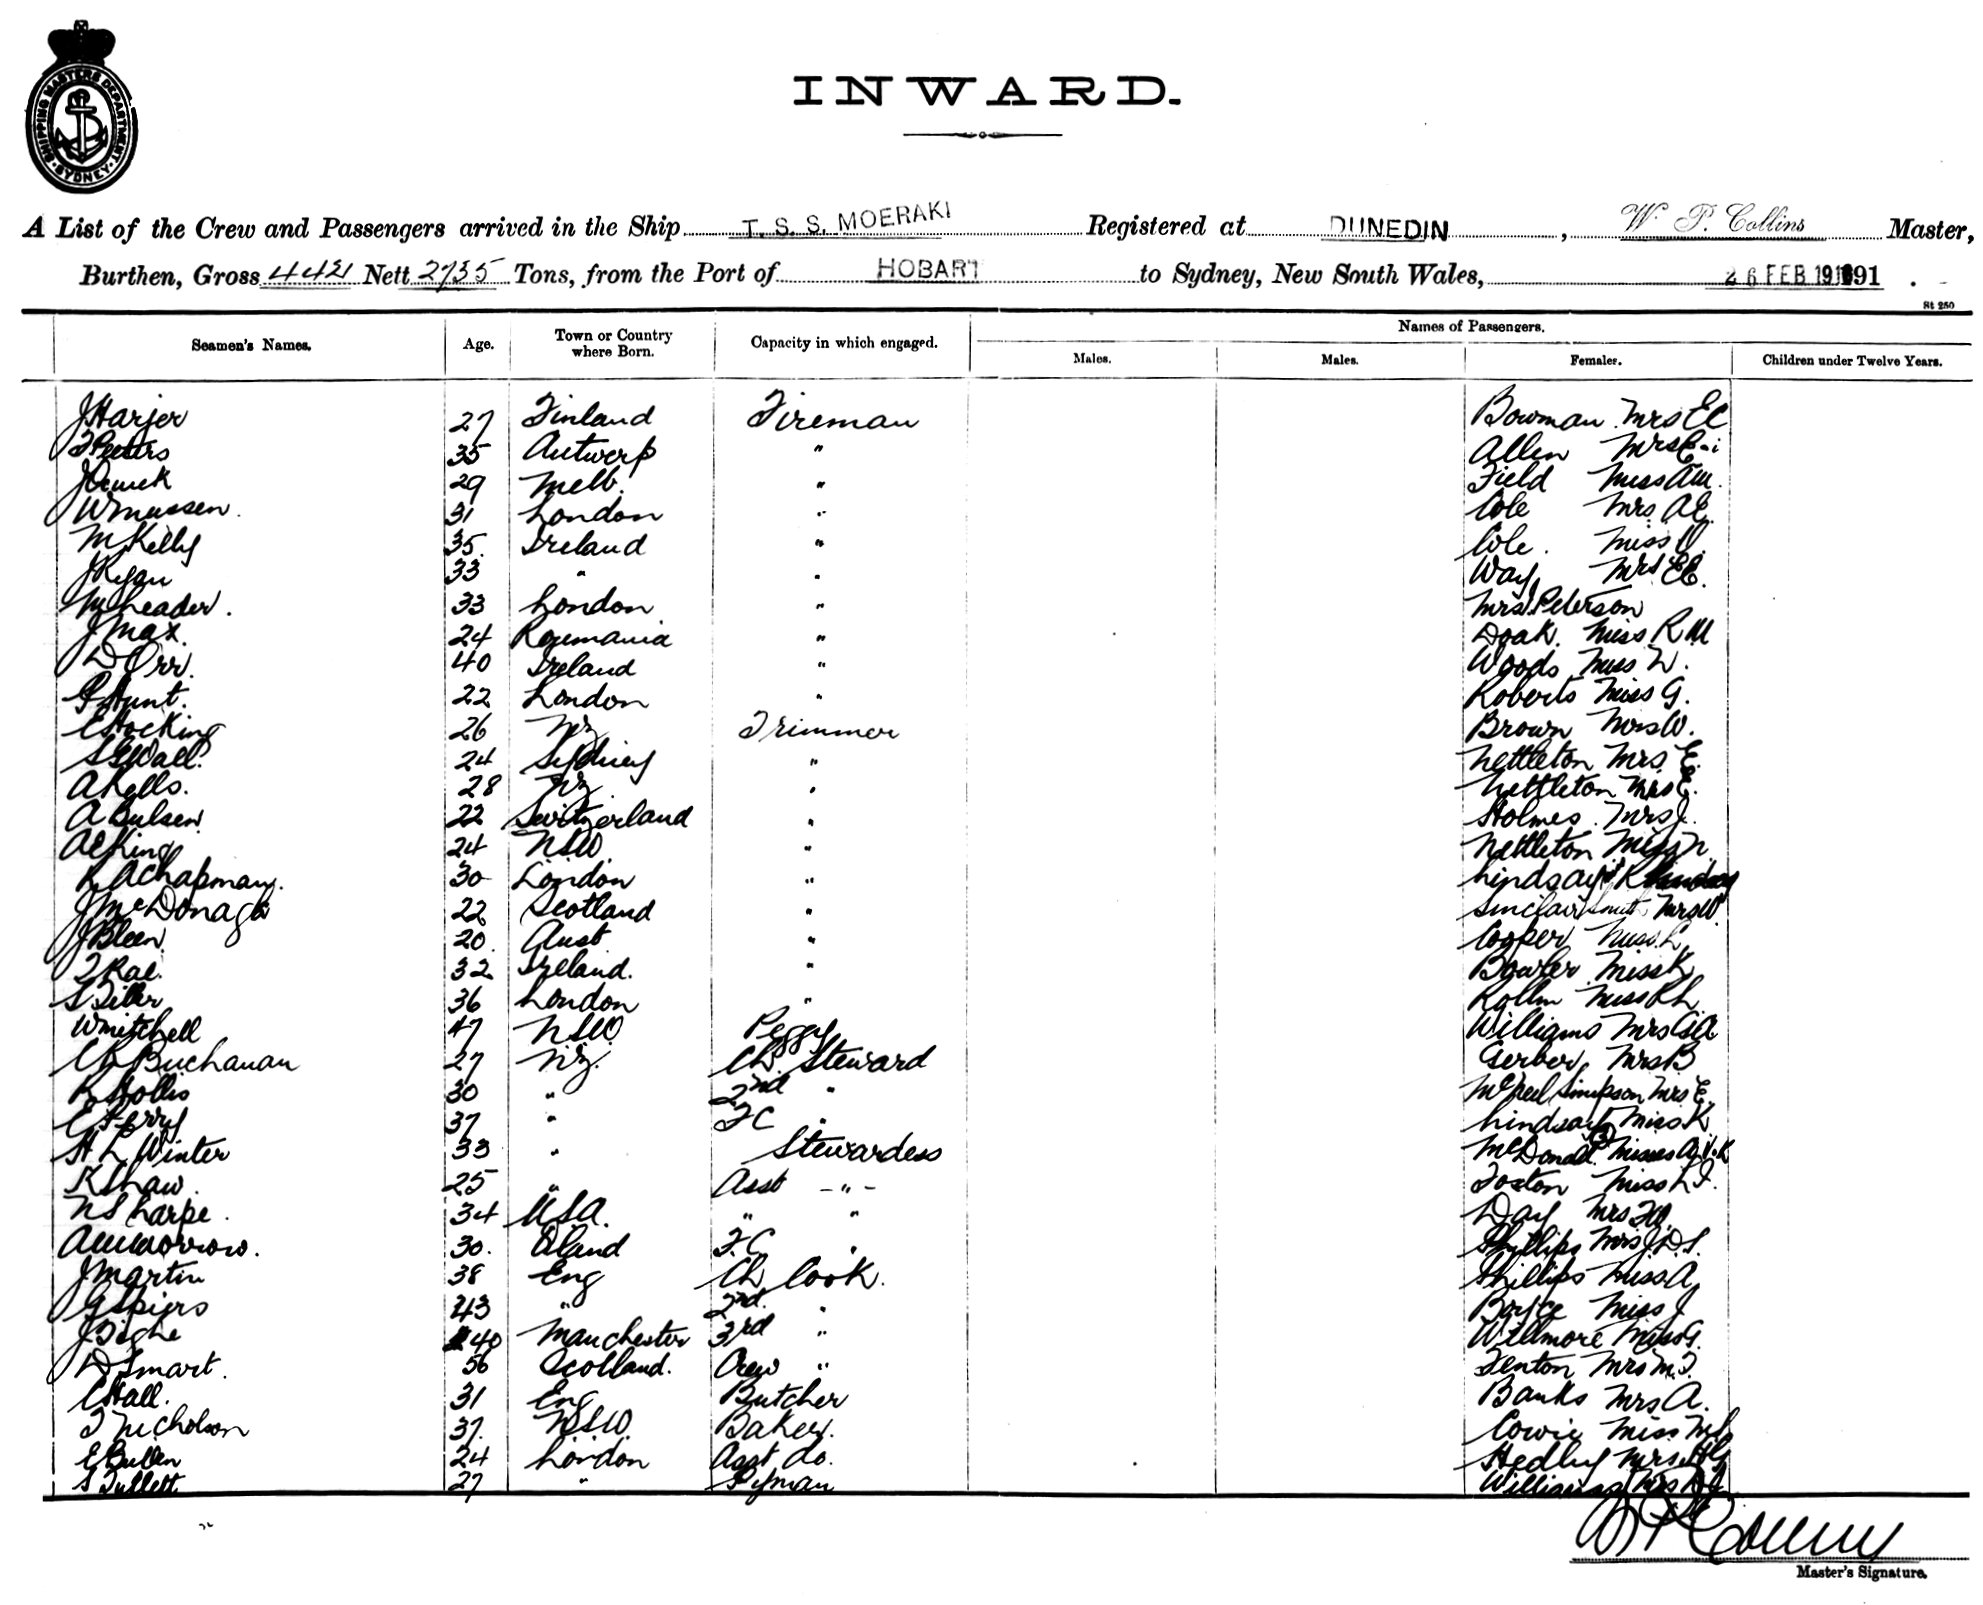 SHIPPING MASTERS DEPARTMENT
SYDNEY
INWARD.
A List of the Crew and Passengers arrived in the Ship T. S. S. MOERAKI Registered at DUNEDIN, W. P. Collins Master,
Burthen, Gross 4421 Nett 2735 Tons, from the Port of HOBART to Sydney, New South Wales, 26 FEB 191 191 .
St 250
Seamen's Names. Age. Town or Country where Born. Capacity in which engaged. Names of Passengers.
Males. Males. Females. Children under Twelve Years.
J Harjer 27 Finland Fireman Bowman Mrs EC
F Peeters 35 Antwerp " Allen Mrs
29 Melb. " Field Miss AM.
W Mussen. 31 London " Cole Mrs AE.
M Kelly 35. Ireland " Cole. Miss V.
J Ryan 33 " " Way, Mrs EE.
M Sheader. 33 London " Mrs Peterson
J Max. 24 Roumania " Doak. Miss R M
D Orr. 40 Ireland " Woods Miss
G Hunt. 22 London " Roberts Miss G.
E Hocking 26 NZ Trimmer Brown Mrs W.
Wall. 24 Sydney " Nettleton Mrs E.
A Kells. 28 NZ " Nettleton Mrs E.
A Bulsen 22 Switzerland " Holmes. Mrs J.
AE King 24 NSW " Nettleton Miss N
R A Chapman. 30 London " Lindsay K
J McDonagh 22 Scotland " Sinclair Smith Mrs W
J Bleen 20. Aust " Cooper Miss L
T Rae. 32 Ireland. " Bowler Miss K
S Tiller 36 London " Miss
W Mitchell 47 NSW Peggy Williams Mrs
Buchanan 27 NZ. Ch. Steward Gerber, Mrs B
R Hollis 30 " 2nd " Simpson Mrs E.
E Perry 37 " FC " Lindsay Miss K
H L Winter 33 " Stewardess McDonald (3) Misses
K Shaw. 25 " Asst - " - Foxton Miss
N Sharpe. 34 USA. " " Day Mrs
A M Morrow. 30. F.C " Phillips Mrs J.D.S.
J Martin 38 Eng Ch Cook. Phillips Miss A
G Spiers 43 " 2nd. " Boyce Miss J
J Tighe 40 Manchester 3rd " Willmore Miss G.
D Smart. 56 Scotland. Crew " Fenton Mrs M.F.
C Hall. 31 Eng Butcher Banks Mrs A.
T Nicholson 37. NSW. Baker. Cowie Miss
E Bullen 24 London Asst do. Hedley Mrs
S Tullett 27 " Pyman Williams Mrs
W P Collins
Master's Signature.